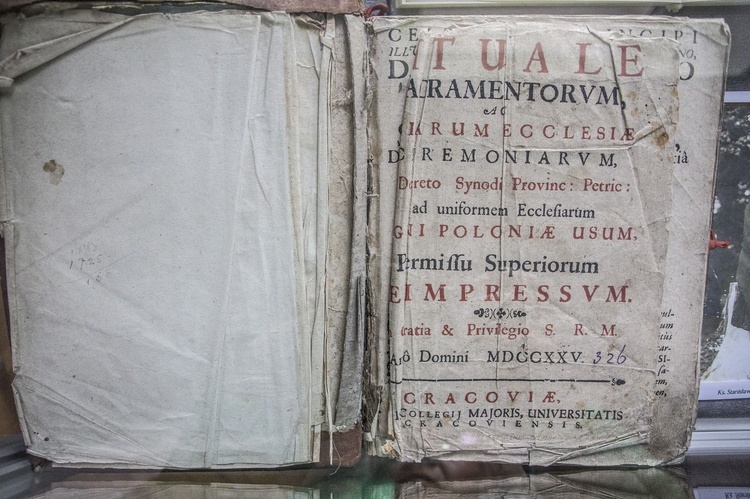 1725
ITUALE
ACRAMENTORVM,
AC
ARUM ECCLESIÆ
REMONIARVM,
Decreto Synodi Provinc: Petric:
ad uniformem Ecclesiarum
GNI POLONIÆ USUM,
Permissu Superiorum
EIMPRESSVM.
ratia & Privilegio S. R. M.
Domini MDCCXXV. 326
CRACOVIÆ,
COLLEGIJ MAJORIS, UNIVERSITATIS
CRACOVIENSIS.
Ks. Stanisław